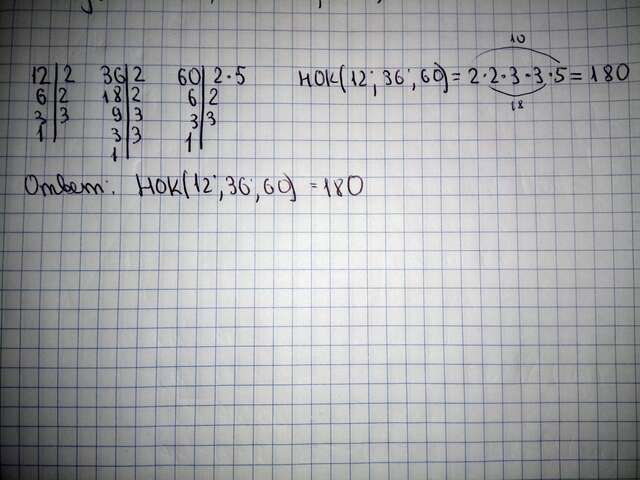 10
12|2 36|2 60|2·5 НОК(12; 36; 60) = 2·2·3·3·5 = 180
6|2 18|2 6|2 18
3|3 9|3 3|3
1| 3|3 1|
1|
Ответ: НОК(12; 36; 60) = 180